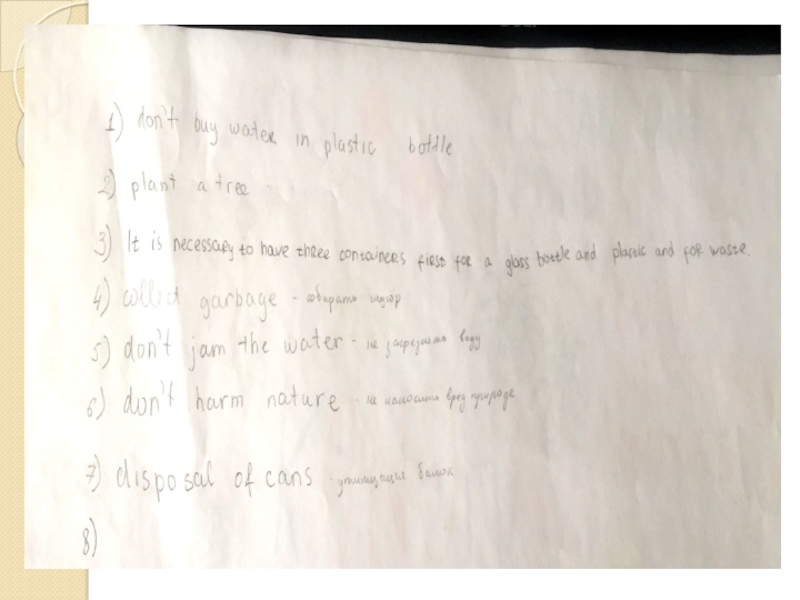 1) don't buy water in plastic bottle
2) plant a tree
3) It is necessary to have three containers first for a glass bottle and plastic and for waste.
4) collect garbage - собирать мусор
5) don't jam the water - не загрязнять воду
6) don't harm nature - не наносить вред природе
7) disposal of cans - утилизация банок
8)